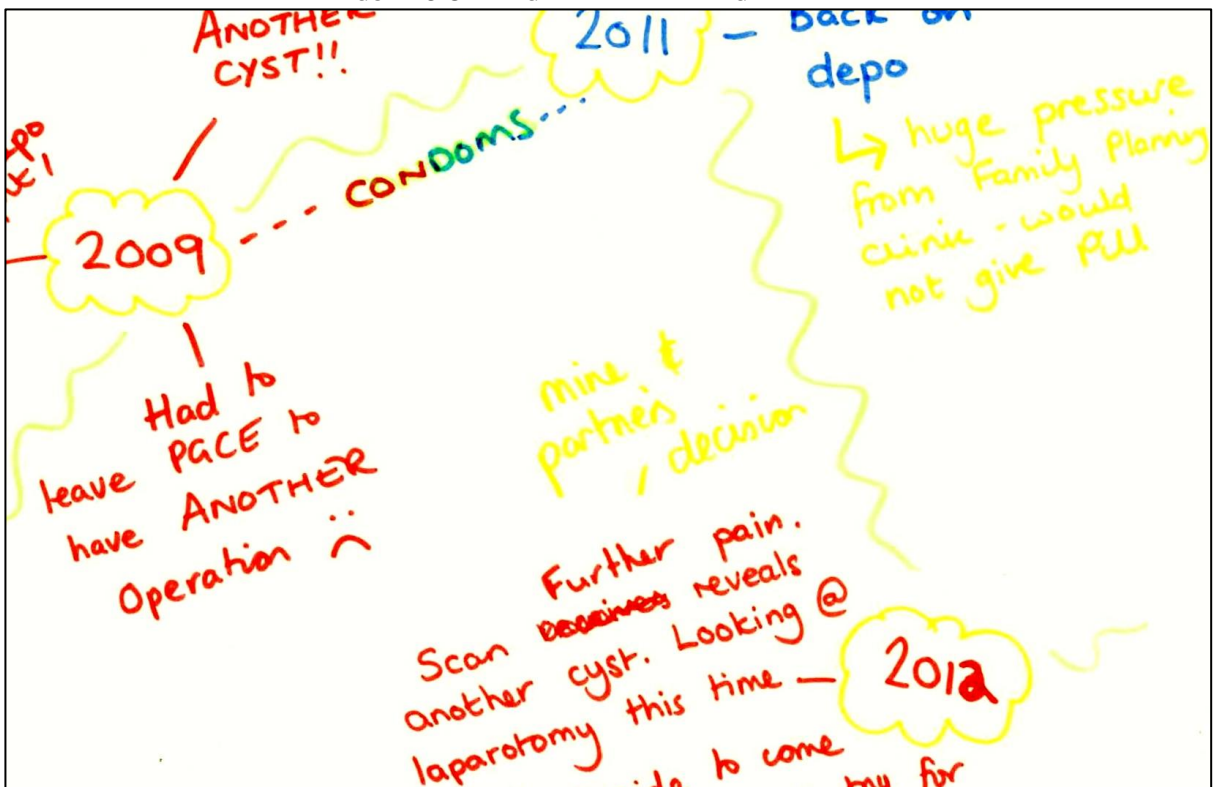 ANOTHER
CYST!!
2011 – Back on
depo
↳ huge pressure
from Family Planning
clinic - would
not give Pill
CONDOMS
2009
Had to
leave PGCE to
have ANOTHER
Operation :(
mine &
partners
decision
Further pain.
Scan reveals
another cyst. Looking @
laparotomy this time –
2012
to come
for